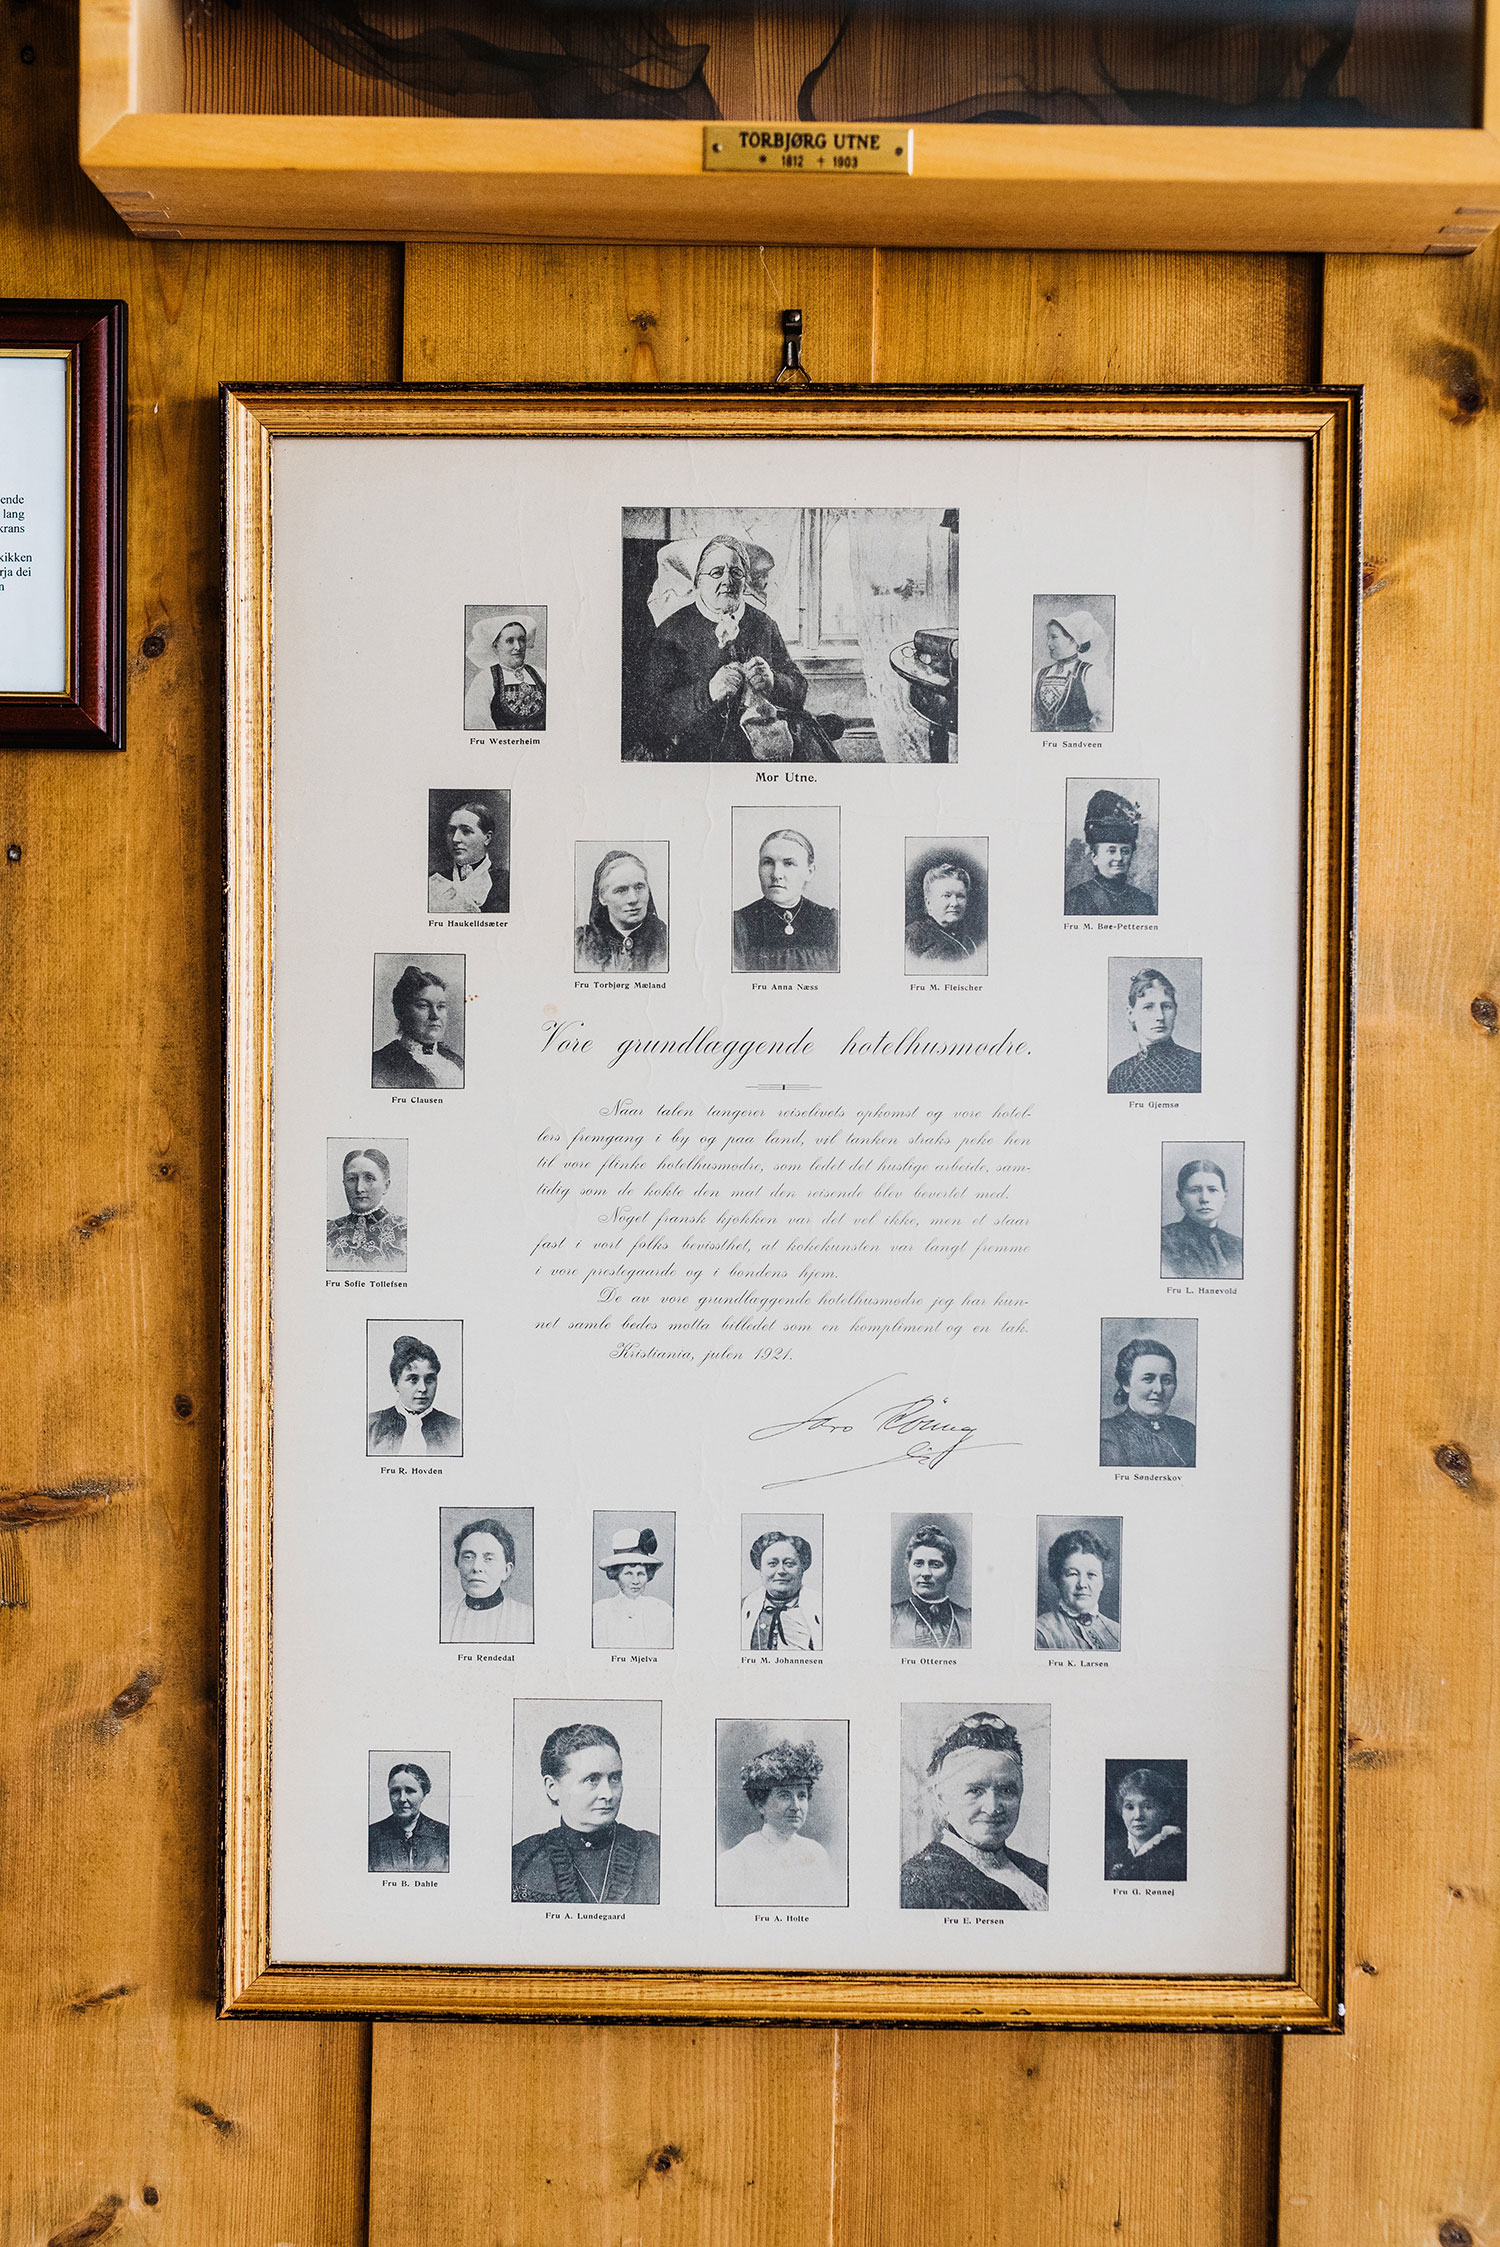 TORBJØRG UTNE
* 1812 + 1903
ende
lang
krans
kikken
rja dei
n
Mor Utne.
Fru Westerheim
Fru Sandveen
Fru Haukelidsæter
Fru Torbjørg Mæland
Fru Anna Næss
Fru M. Fleischer
Fru M. Bøe-Pettersen
Fru Clausen
Fru Gjemsø
Vore grundlæggende hotelhusmødre.
Naar talen tangerer reiselivets opkomst og vore hotel-
lers fremgang i by og paa land, vil tanken straks peke hen
til vore flinke hotelhusmødre, som ledet det huslige arbeide, sam-
tidig som de kokte den mat den reisende blev bevertet med.
Noget fransk kjøkken var det vel ikke, men et staar
fast i vort folks bevissthet, at kokekunsten var langt fremme
i vore prestegaarde og i bondens hjem.
De av vore grundlæggende hotelhusmødre jeg har kun-
net samle bedes motta billedet som en kompliment og en tak.
Kristiania, julen 1921.
Fru Sofie Tollefsen
Fru L. Hanevold
Fru R. Hovden
Fru Sønderskov
Fru Rendedal
Fru Mjelva
Fru M. Johannesen
Fru Otternes
Fru K. Larsen
Fru B. Dahle
Fru A. Lundegaard
Fru A. Holte
Fru E. Persen
Fru G. Rønnej